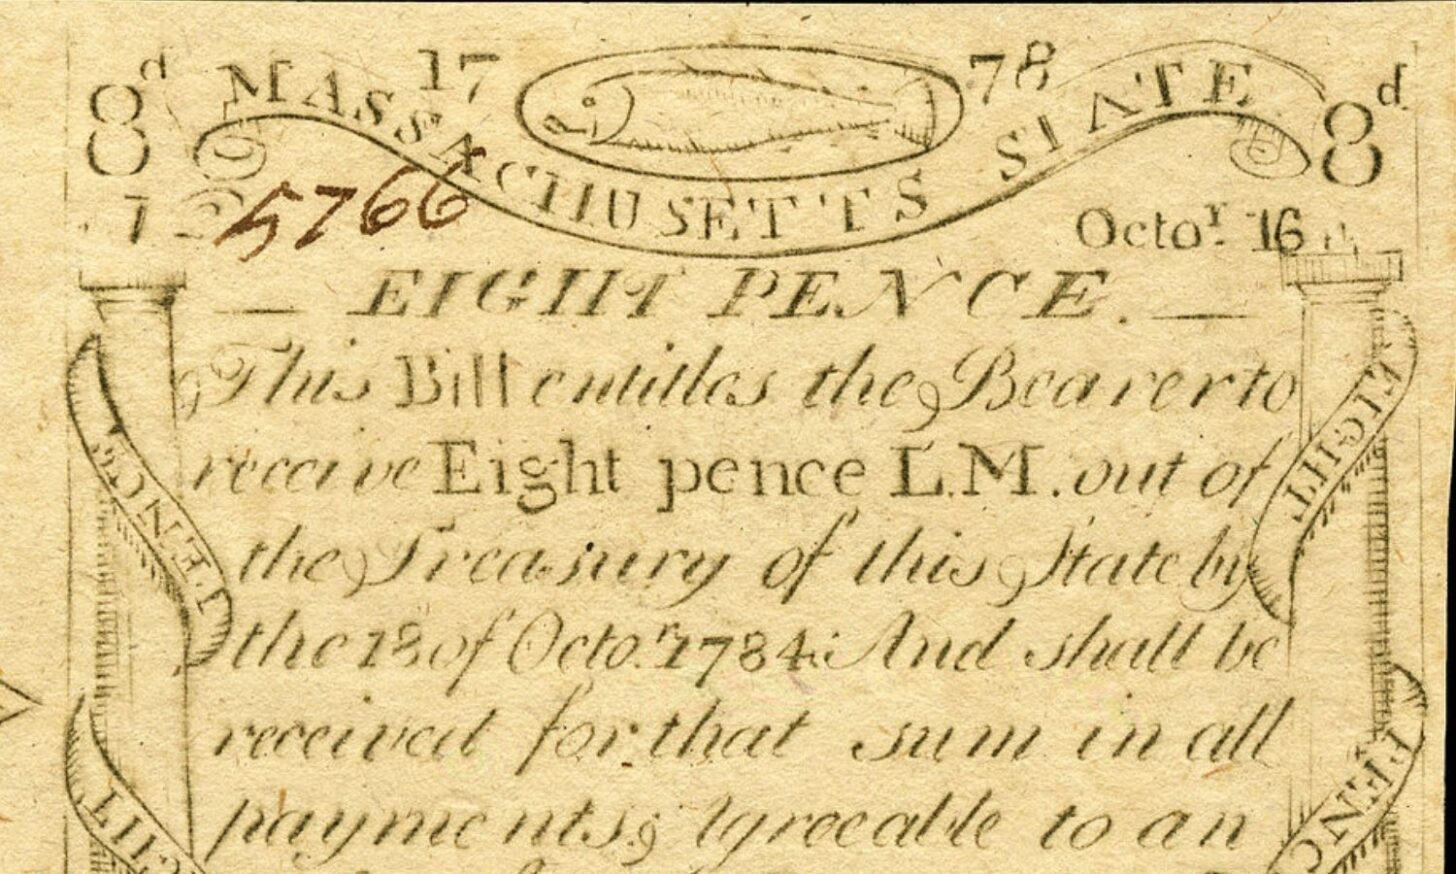 8d 17 78 8d
MASSACHUSETTS STATE
5766
Octor. 16
— EIGHT PENCE. —
This Bill entitles the Bearer to
receive Eight pence L.M. out of
the Treasury of this State by
the 18 of Octo.r 1784: And shall be
received for that sum in all
payments; Agreeable to an
PENCE
EIGHT
EIGHT
PENCE